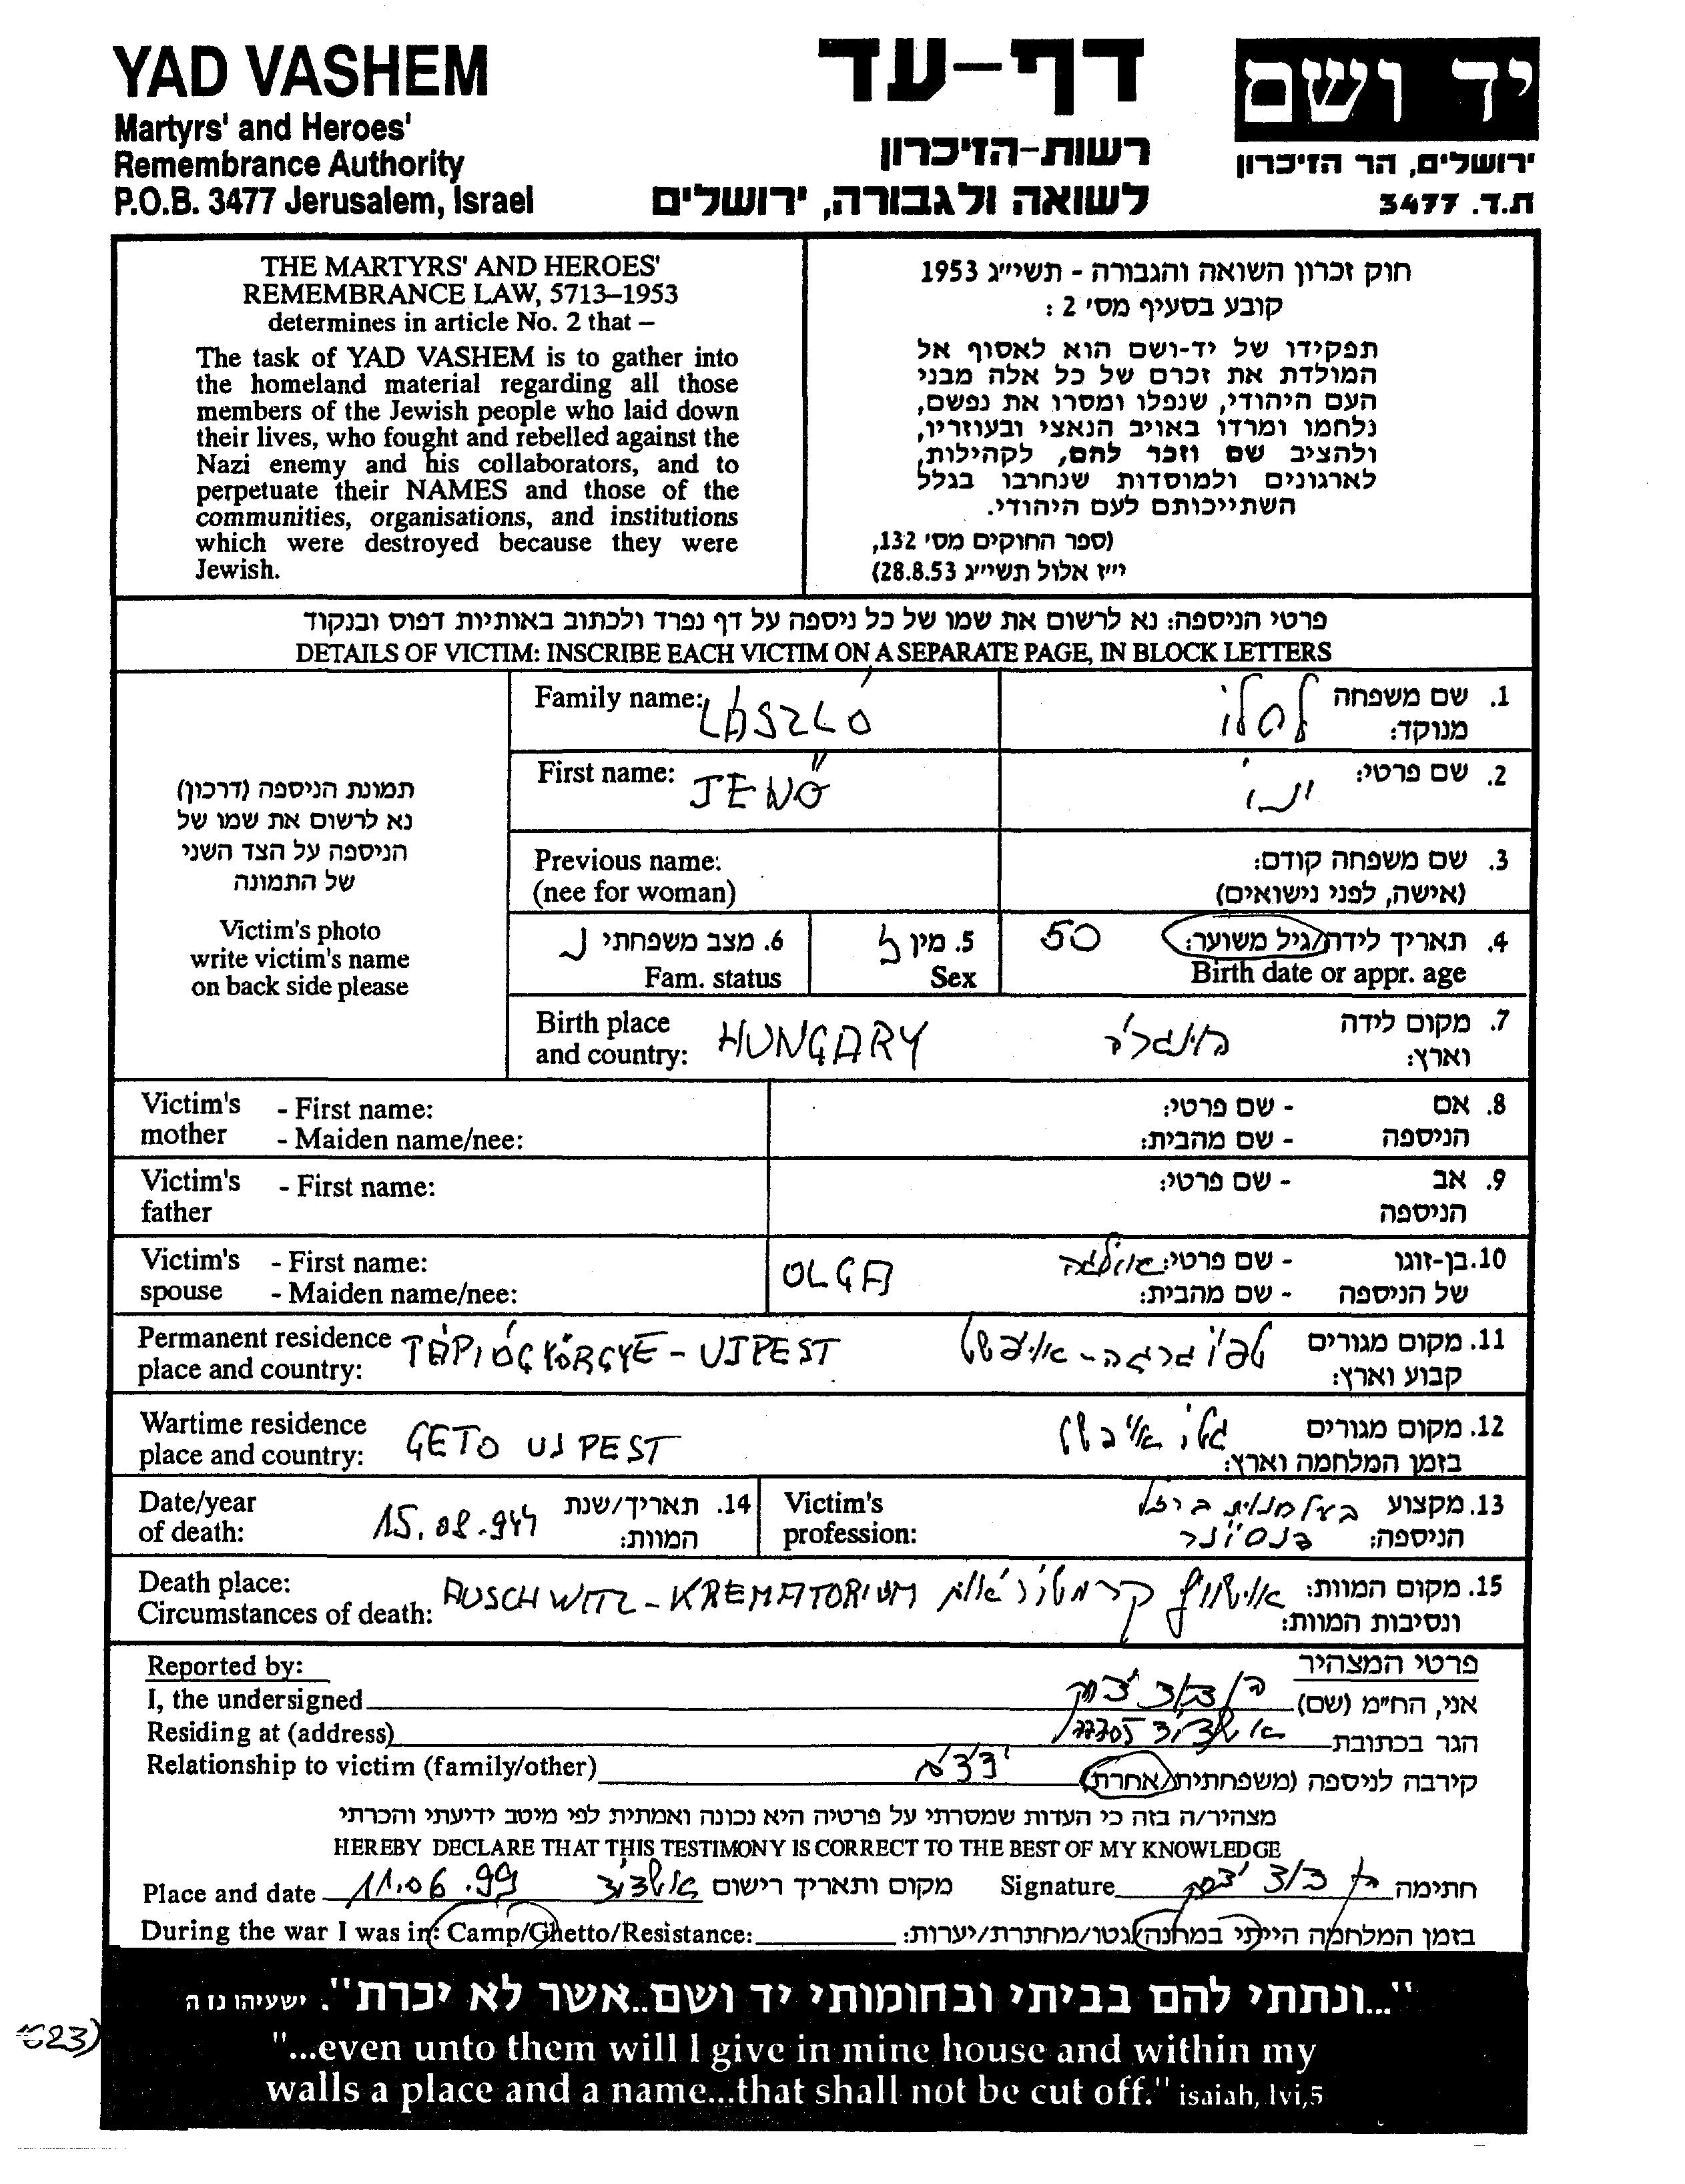 YAD VASHEM
Martyrs' and Heroes'
Remembrance Authority
P.O.B. 3477 Jerusalem, Israel
דף-עד
רשות-הזיכרון
לשואה ולגבורה, ירושלים
יד ושם
ירושלים, הר הזיכרון
ת.ד. 3477
THE MARTYRS' AND HEROES'
REMEMBRANCE LAW, 5713–1953
determines in article No. 2 that –
The task of YAD VASHEM is to gather into
the homeland material regarding all those
members of the Jewish people who laid down
their lives, who fought and rebelled against the
Nazi enemy and his collaborators, and to
perpetuate their NAMES and those of the
communities, organisations, and institutions
which were destroyed because they were
Jewish.
חוק זכרון השואה והגבורה - תשי״ג 1953
קובע בסעיף מס׳ 2 :
תפקידו של יד-ושם הוא לאסוף אל
המולדת את זכרם של כל אלה מבני
העם היהודי, שנפלו ומסרו את נפשם,
נלחמו ומרדו באויב הנאצי ובעוזריו,
ולהציב שם וזכר להם, לקהילות,
לארגונים ולמוסדות שנחרבו בגלל
השתייכותם לעם היהודי.
(ספר החוקים מס׳ 132,
י״ז אלול תשי״ג 28.8.53)
פרטי הניספה: נא לרשום את שמו של כל ניספה על דף נפרד ולכתוב באותיות דפוס ובנקוד
DETAILS OF VICTIM: INSCRIBE EACH VICTIM ON A SEPARATE PAGE, IN BLOCK LETTERS
תמונת הניספה (דרכון)
נא לרשום את שמו של
הניספה על הצד השני
של התמונה
Victim's photo
write victim's name
on back side please
Family name: LÁSZLÓ לסלו 1. שם משפחה
מנוקד:
First name: JENŐ ינו 2. שם פרטי:
Previous name: 3. שם משפחה קודם:
(nee for woman) (אישה, לפני נישואים)
6. מצב משפחתי נ 5. מין ז 50 4. תאריך לידה/גיל משוער:
Fam. status Sex Birth date or appr. age
Birth place 7. מקום לידה
and country: HUNGARY הונגריה וארץ:
Victim's - First name: - שם פרטי: 8. אם
mother - Maiden name/nee: - שם מהבית: הניספה
Victim's - First name: - שם פרטי: 9. אב
father הניספה
Victim's - First name: OLGA אולגה - שם פרטי: 10. בן-זוגו
spouse - Maiden name/nee: - שם מהבית: של הניספה
Permanent residence TÁPIÓGYÖRGYE - UJPEST 11. מקום מגורים
place and country: קבוע וארץ:
Wartime residence GETO UJPEST גטו 12. מקום מגורים
place and country: בזמן המלחמה וארץ:
Date/year 15.08.944 14. תאריך/שנת
of death: המוות:
Victim's 13. מקצוע
profession: פנסיונר הניספה:
Death place: AUSCHWITZ - KREMATORIUM אושוויץ קרמטוריאום 15. מקום המוות:
Circumstances of death: ונסיבות המוות:
Reported by: פרטי המצהיר
I, the undersigned יצחק אני, הח״מ (שם)
Residing at (address) אשדוד הגר בכתובת
Relationship to victim (family/other) ידידים קירבה לניספה (משפחתית/אחרת)
מצהיר/ה בזה כי העדות שמסרתי על פרטיה היא נכונה ואמתית לפי מיטב ידיעתי והכרתי
HEREBY DECLARE THAT THIS TESTIMONY IS CORRECT TO THE BEST OF MY KNOWLEDGE
Place and date 11.06.99 אשדוד מקום ותאריך רישום Signature יצחק חתימה
During the war I was in: Camp/Ghetto/Resistance: בזמן המלחמה הייתי במחנה/גטו/מחתרת/יערות:
"...ונתתי להם בביתי ובחומותי יד ושם..אשר לא יכרת". ישעיהו נו ה
"...even unto them will I give in mine house and within my
walls a place and a name...that shall not be cut off." isaiah, lvi,5